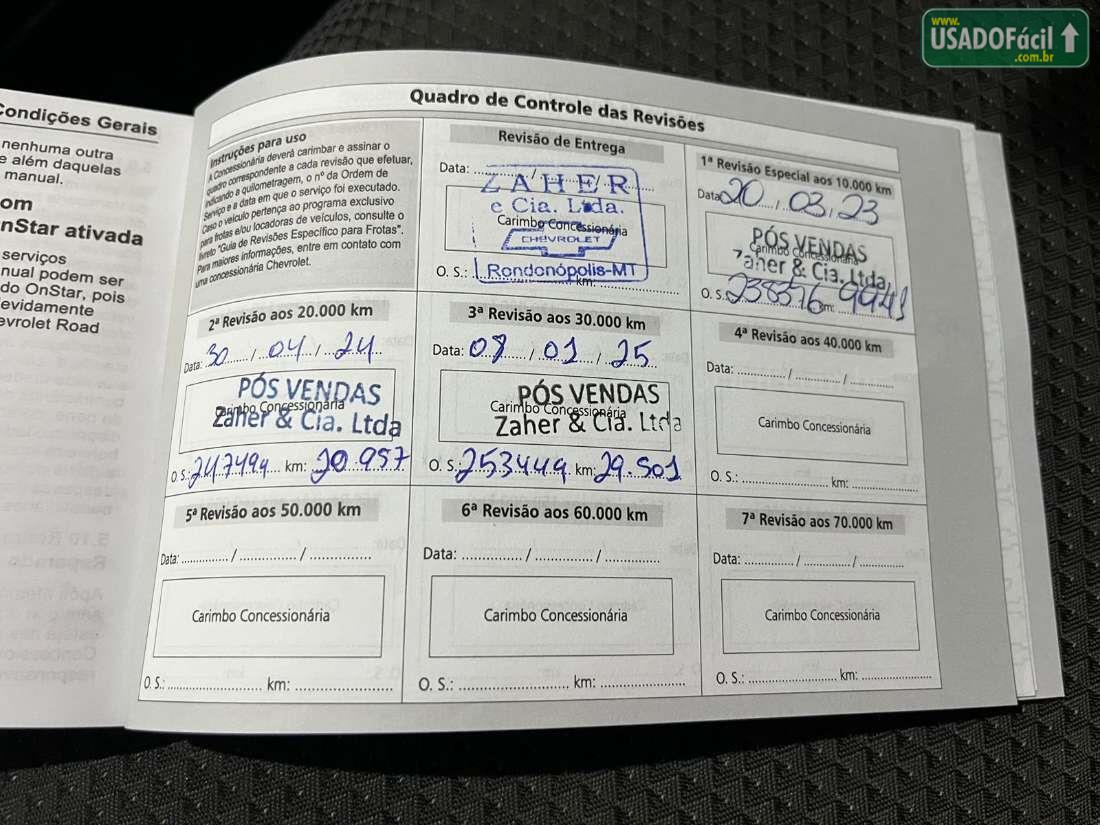 www.
USADOFácil
.com.br
Condições Gerais
nenhuma outra
e além daquelas
manual.
om
nStar ativada
serviços
nual podem ser
do OnStar, pois
evidamente
evrolet Road
Quadro de Controle das Revisões
Instruções para uso
A Concessionária deverá carimbar e assinar o
quadro correspondente a cada revisão que efetuar,
indicando a quilometragem, o nº da Ordem de
Serviço e a data em que o serviço foi executado.
Caso o veículo pertença ao programa exclusivo
para frotas e/ou locadoras de veículos, consulte o
livreto "Guia de Revisões Específico para Frotas".
Para maiores informações, entre em contato com
uma concessionária Chevrolet.
Revisão de Entrega
Data: ....... / ....... / .......
ZAHER
e Cia. Ltda.
Carimbo Concessionária
CHEVROLET
Rondonópolis-MT
O. S.: ....... km: .......
1ª Revisão Especial aos 10.000 km
Data: 20 / 03, 23
PÓS VENDAS
Carimbo Concessionária
Zaher & Cia. Ltda,
O. S.: 238376 km: 9941
2ª Revisão aos 20.000 km
Data: 30 / 04 / 24
PÓS VENDAS
Carimbo Concessionária
Zaher & Cia. Ltda
O. S.: 247494 km: 20.957
3ª Revisão aos 30.000 km
Data: 07 / 01 / 25
PÓS VENDAS
Carimbo Concessionária
Zaher & Cia. Ltda
O. S.: 253449 km: 29.501
4ª Revisão aos 40.000 km
Data: ....... / ....... / .......
Carimbo Concessionária
O. S.: ....... km: .......
5ª Revisão aos 50.000 km
Data: ....... / ....... / .......
Carimbo Concessionária
O. S.: ....... km: .......
6ª Revisão aos 60.000 km
Data: ....... / ....... / .......
Carimbo Concessionária
O. S.: ....... km: .......
7ª Revisão aos 70.000 km
Data: ....... / ....... / .......
Carimbo Concessionária
O. S.: ....... km: .......